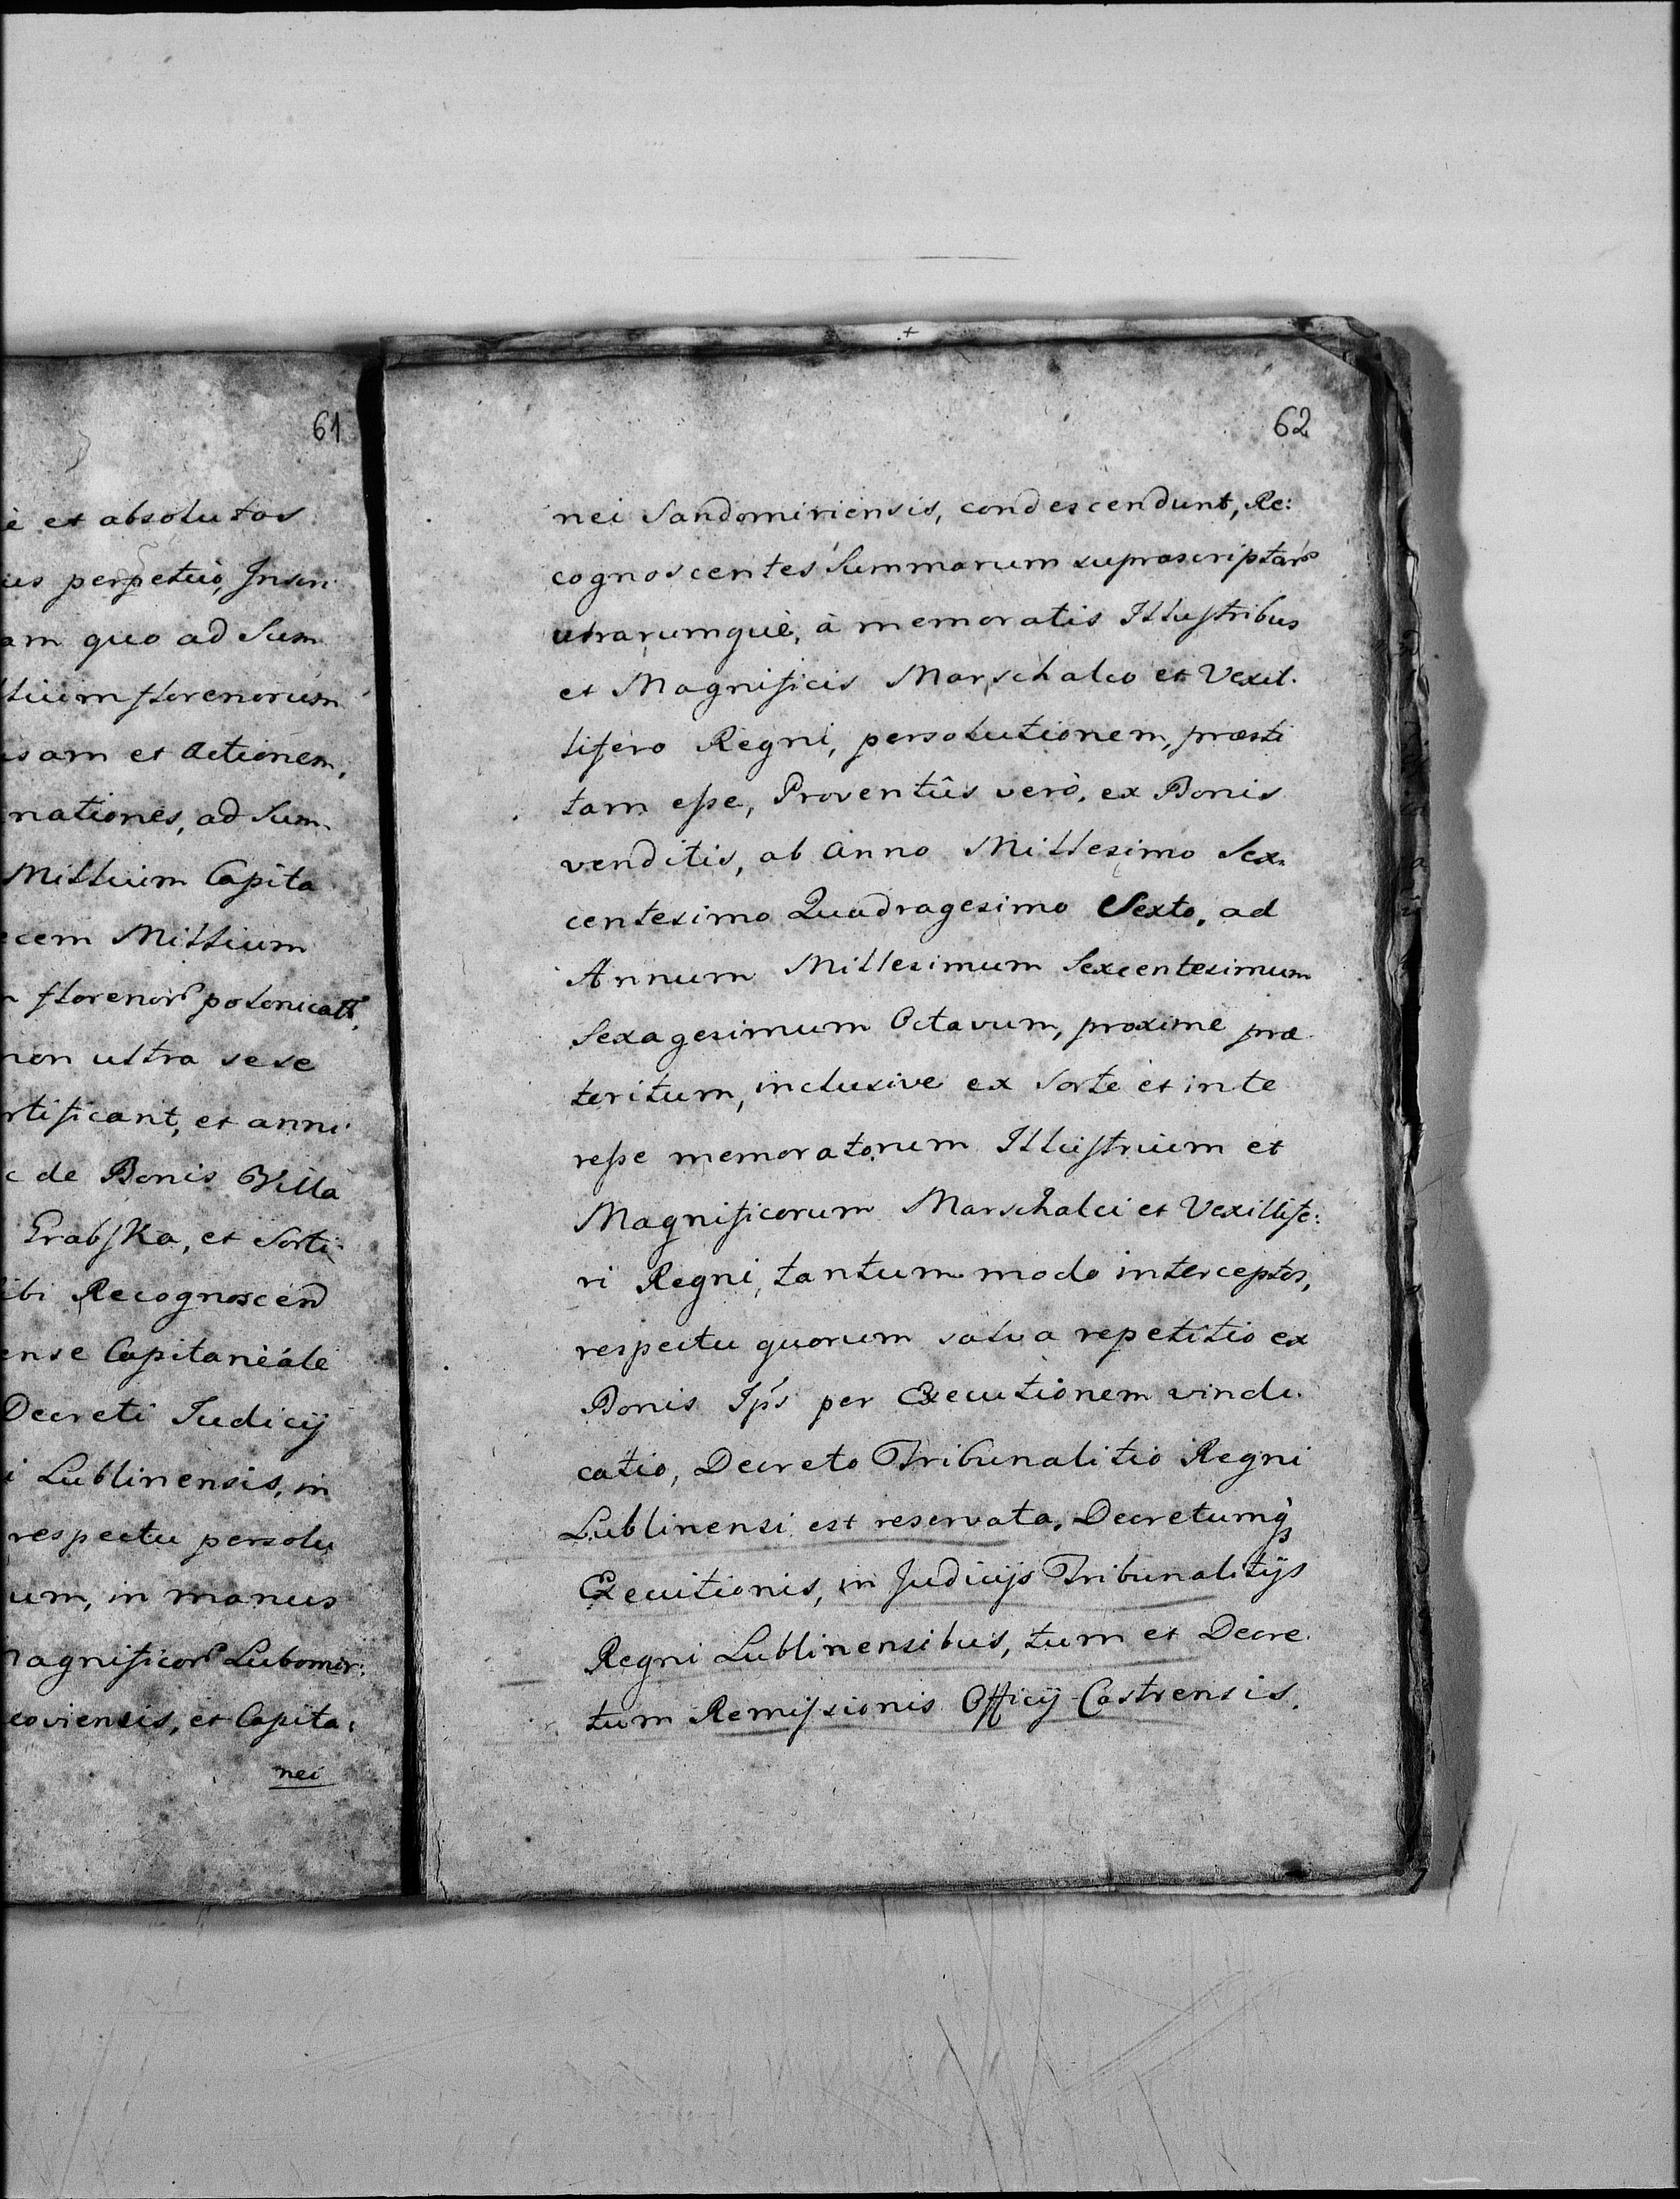 61
è et absolutas
perpetuò, Inscri
am quo ad Sum
florenorum
et Actionem,
nationes, ad Sum
Millium Capita
Millium
florenor polonicalt,
non ultra sese
et anni
de Bonis Villa
Grabska, et Sorti
Recognoscend
Capitaneale
Decreti Judicij
Lublinensis, in
respectu persolu
in manus
Lubomir:
et Capita:
nei
62
nei Sandomiriensis, condescendunt, Re:
cognoscentes Summarum suprascriptar
utrarumquè, à memoratis Illustribus
et Magnificis Marschalco et Vexil.
lifero Regni, persolutionem, præsti
tam esse, Proventûs verò, ex Bonis
venditis, ab Anno Millesimo Sex.
centesimo Quadragesimo Sexto, ad
Annum Millesimum Sexcentesimum
Sexagesimum Octavum, proxime præ
teritum, inclusive ex Sorte et inte
resse memoratorum Illustrium et
Magnificorum Marschalci et Vexillife:
ri Regni, tantummodo interceptos,
respectu quorum salva repetitio ex
Bonis Ips per Executionem vindi.
catio, Decreto Tribunalitio Regni
Lublinensi est reservata, Decretumq
Executionis, in Judicijs Tribunalitijs
Regni Lublinensibus, tum et Decre.
tum Remissionis Officij Castrensis.